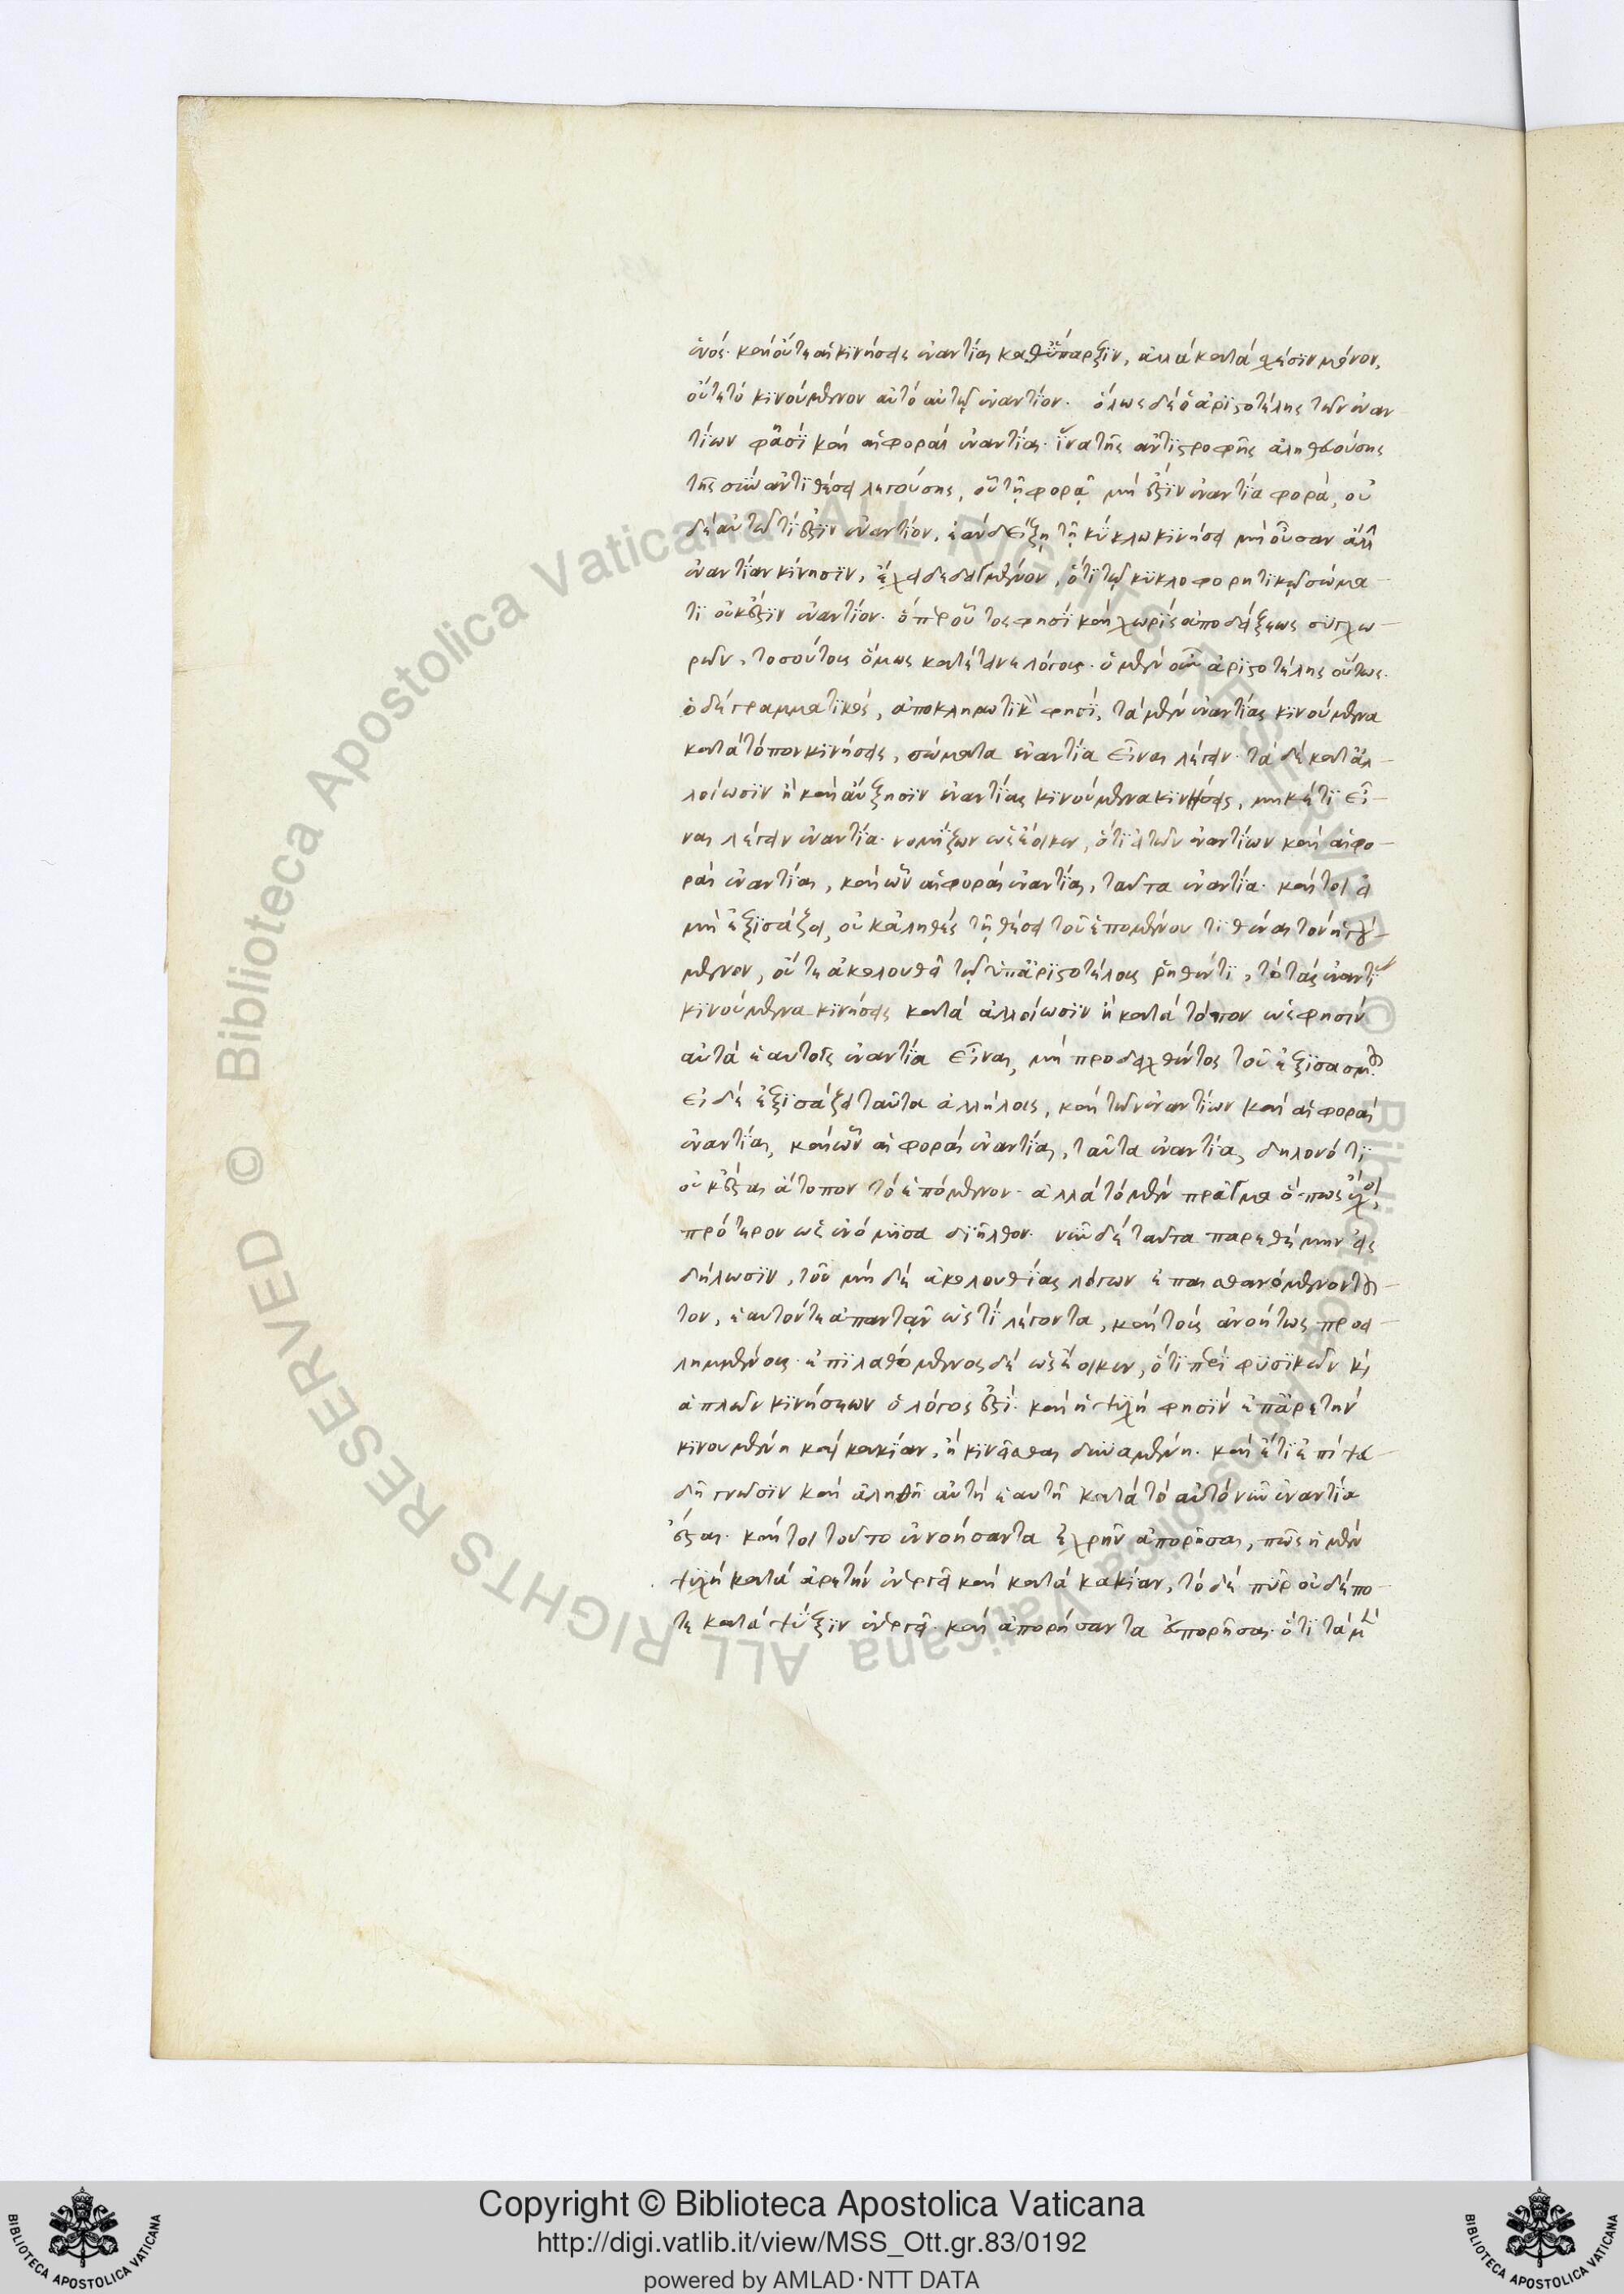 ἑνός· καὶ οὔτε αἱ κινήσεις ἐναντίαι καθύπαρξιν, ἀλλὰ κατὰ σχέσιν μόνον,
οὔτε τὸ κινούμενον αὐτὸ αὑτῷ ἐναντίον· ὅλως δὲ ὁ ἀριστοτέλης τῶν ἐναν
τίων φασὶ καὶ αἱ φοραὶ ἐναντίαι· ἵνα τῆς ἀντιστροφῆς ἀληθευούσης
τῆς σὺν ἀντιθέσει λεγούσης, οὗ τῇ φορᾷ μή ἐστιν ἐναντία φορὰ, οὐ
δὲ αὐτῷ τί ἐστιν ἐναντίον, ἐὰν δείξῃ τῇ κύκλῳ κινήσει μὴ οὖσαν ἄλλην
ἐναντίαν κίνησιν, ἔχει δεδειγμένον, ὅτι τῷ κυκλοφορητικῷ σώμα-
τι οὐκ ἔστιν ἐναντίον· ὅπερ οὗτος φησὶ καὶ χωρὶς ἀποδείξεως συγχω-
ρῶν, τοσούτοις ὅμως κατέτεινε λόγοις· ὁ μὲν οὖν ἀριστοτέλης οὕτως·
ὁ δὲ γραμματικὸς, ἀποκληρωτικῶς φησὶ, τὰ μὲν ἐναντίας κινούμενα
κατὰ τόπον κινήσεις, σώματα ἐναντία εἶναι λέγειν· τὰ δὲ κατ' ἀλ-
λοίωσιν ἢ καὶ αὔξησιν ἐναντίας κινούμενα κινήσεις, μηκέτι εἶ-
ναι λέγειν ἐναντία· νομίζων ὡς ἔοικεν, ὅτι εἰ τῶν ἐναντίων καὶ αἱ φο-
ραὶ ἐναντίαι, καὶ ὧν αἱ φοραὶ ἐναντίαι, ταῦτα ἐναντία· καίτοι εἰ
μὴ ἐξισάζει, οὐκ ἀληθὲς τῇ θέσει τοῦ ἑπομένου τιθέναι τὸν ἡγού-
μενον, οὔτε ἀκολουθεῖ τῷ ὑπ' ἀριστοτέλους ῥηθέντι, τὸ τὰς ἐναντίας
κινούμενα κινήσεις κατὰ ἀλλοίωσιν ἢ κατὰ τόπον ὥς φησιν
αὐτὰ ἑαυτοῖς ἐναντία εἶναι, μὴ προδειχθέντος τοῦ ἐξισασμοῦ.
εἰ δὲ ἐξισάζει ταῦτα ἀλλήλοις, καὶ τῶν ἐναντίων καὶ αἱ φοραὶ
ἐναντίαι, καὶ ὧν αἱ φοραὶ ἐναντίαι, ταῦτα ἐναντία, δηλονότι
οὐκ ἔσται ἄτοπον τὸ ἑπόμενον· ἀλλὰ τὸ μὲν πρᾶγμα ὅπως ἔχοι,
πρότερον ὡς ἐνόμισα διῆλθον· νῦν δὲ ταῦτα παρεθέμην εἰς
δήλωσιν, τοῦ μὴ δὲ ἀκολουθίας λόγων ἐπαισθανόμενον τοῦ-
τον, ἑαυτόν τε ἀπαντᾷν ὥς τι λέγοντα, καὶ τοὺς ἀνοήτως προσει-
λημμένους· ἐπιλαθόμενος δὲ ὡς ἔοικεν, ὅτι περὶ φυσικῶν καὶ
ἁπλῶν κινήσεων ὁ λόγος ἐστί· καὶ ἡ ψυχὴ φησὶν ἐπ' ἀρετὴν
κινουμένη καὶ κακίαν, ἢ κινεῖσθαι δυναμένη· καὶ ἔτι ἐπὶ ψευ-
δῆ γνῶσιν καὶ ἀληθῆ αὐτὴ ἑαυτῇ κατὰ τὸ αὐτὸ νῦν ἐναντία
ἔσται· καίτοι τοῦτο ἐννοήσαντα ἐχρῆν ἀπορῆσαι, πῶς ἡ μὲν
ψυχὴ κατὰ ἀρετὴν ἐνεργεῖ καὶ κατὰ κακίαν, τὸ δὲ πῦρ οὐδέπο-
τε κατὰ ψύξιν ἐνεργεῖ· καὶ ἀπορήσαντα εὐπορῆσαι· ὅτι τὰ μὲν
Copyright © Biblioteca Apostolica Vaticana
http://digi.vatlib.it/view/MSS_Ott.gr.83/0192
powered by AMLAD·NTT DATA